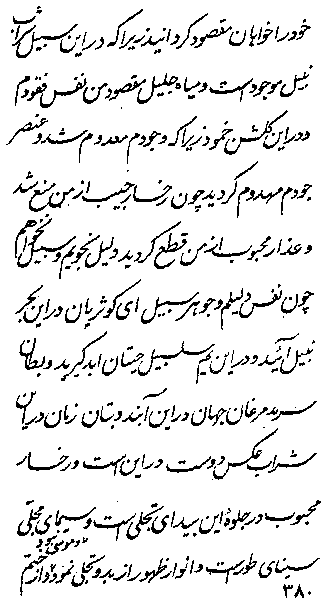 خود را خواهان مقصود گردانید زیرا که در این سبیل شراب
نیل موجود است و میاه جلیل مقصود من نفس فقودم
و در این گلشن خمود زیرا که وجودم معدوم شد و عنصر
جودم مهدوم گردید چون رخسار حبیب از من منع شد
و عذار محبوب از من قطع گردید دلیل نجویم و سبیل نخواهم
چون نفس دلیلم و جوهر سبیل ای کوثریان در این بحر
نیل آئید و در این یم سلسبیل حیتان ابد گیرید و بطان
سرمد مرغان جهان در این آبند و بتان زمان در این
شراب عکس دوست در این است و رخسار
محبوب در جلوهٔ این بیدای تجلی است و سیمای مجلی
سینای طور است و انوار ظهور از ید و تجلی نمود
۳۸۰